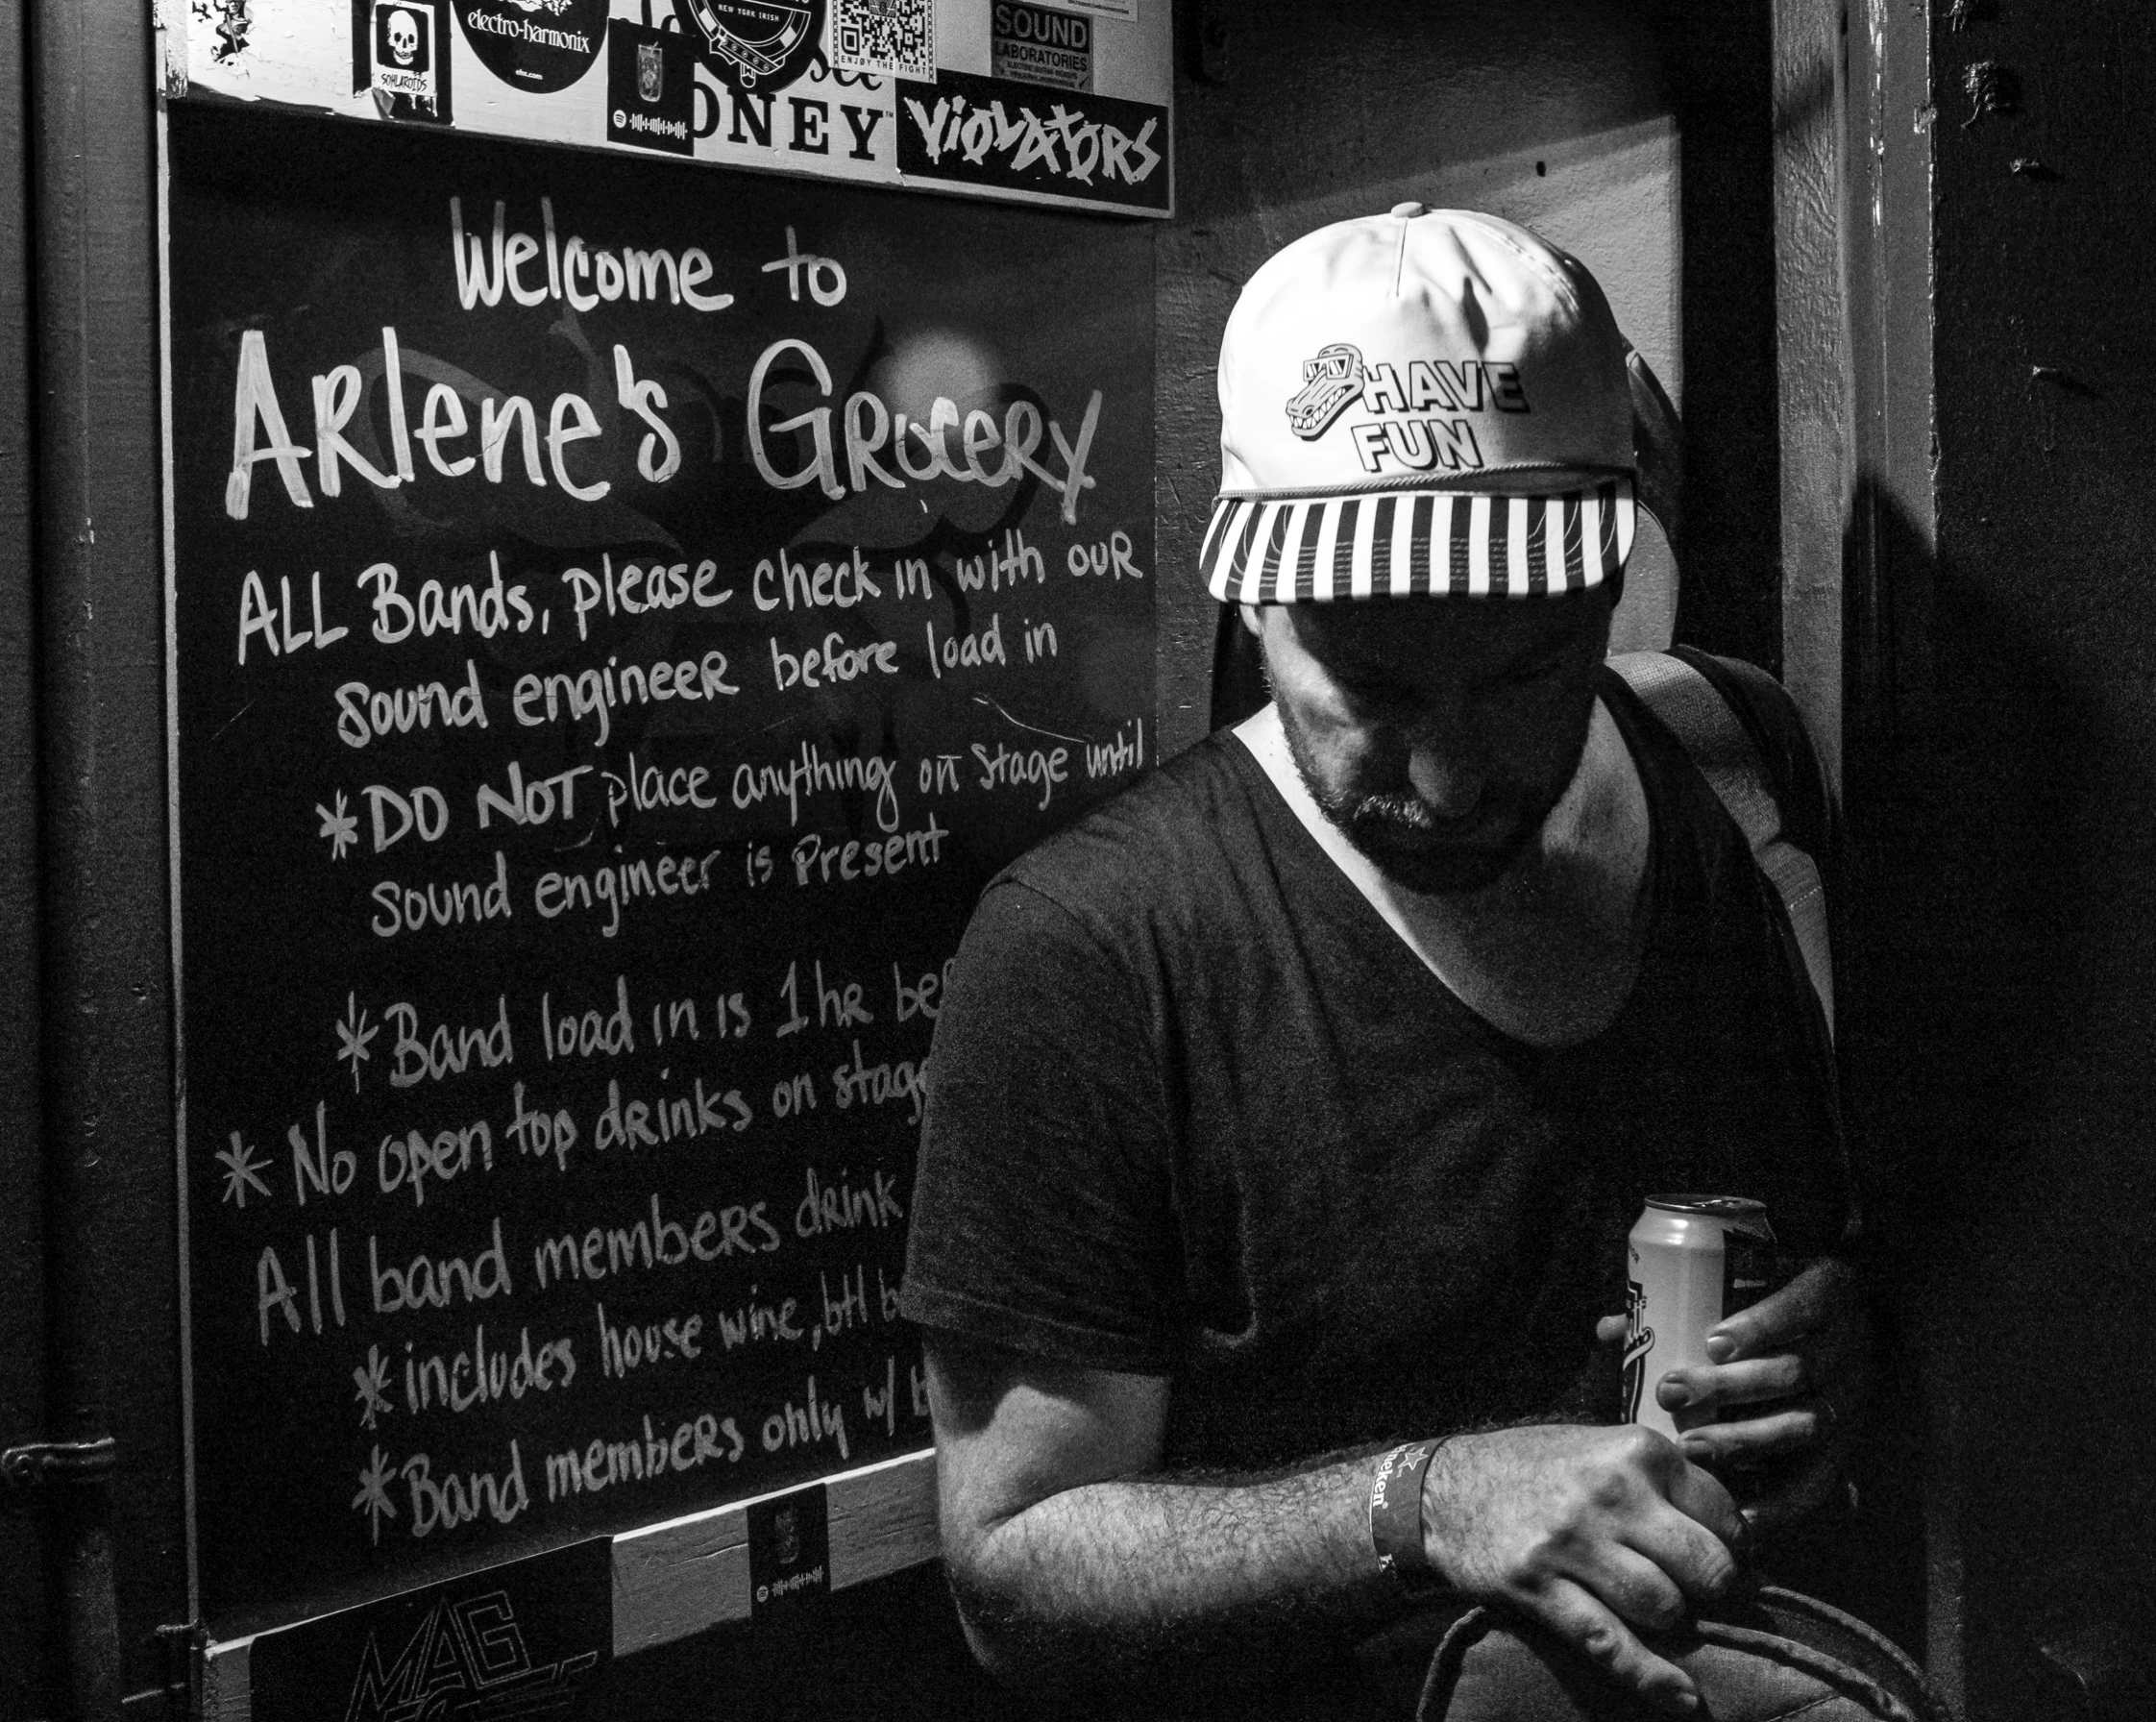 electro-harmonix
ehc.com
SOHLAROIDS
NEW YORK IRISH
ENJOY THE FIGHT
SOUND
LABORATORIES
ONEY™
ViOLATORS
Welcome to
ARlene's GROCERY
ALL Bands, please check in with ouR
sound engineeR before load in
*DO NOT place anything on stage until
sound engineer is Present
*Band load in is 1 hR bef
* No open top dRinks on stage
All band membeRs drink
*includes house wine, btl b
*Band membeRs only w/
MAG
HAVE
FUN
Heineken